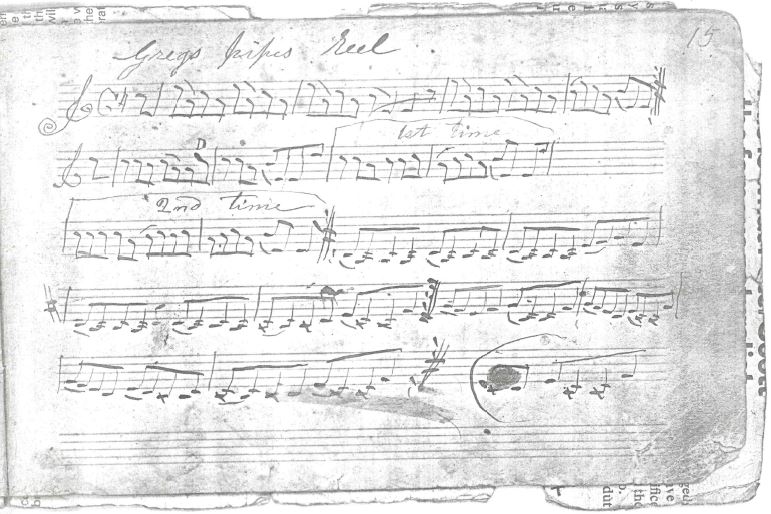 15
Gregs pipes Reel
1st time
D
2nd time